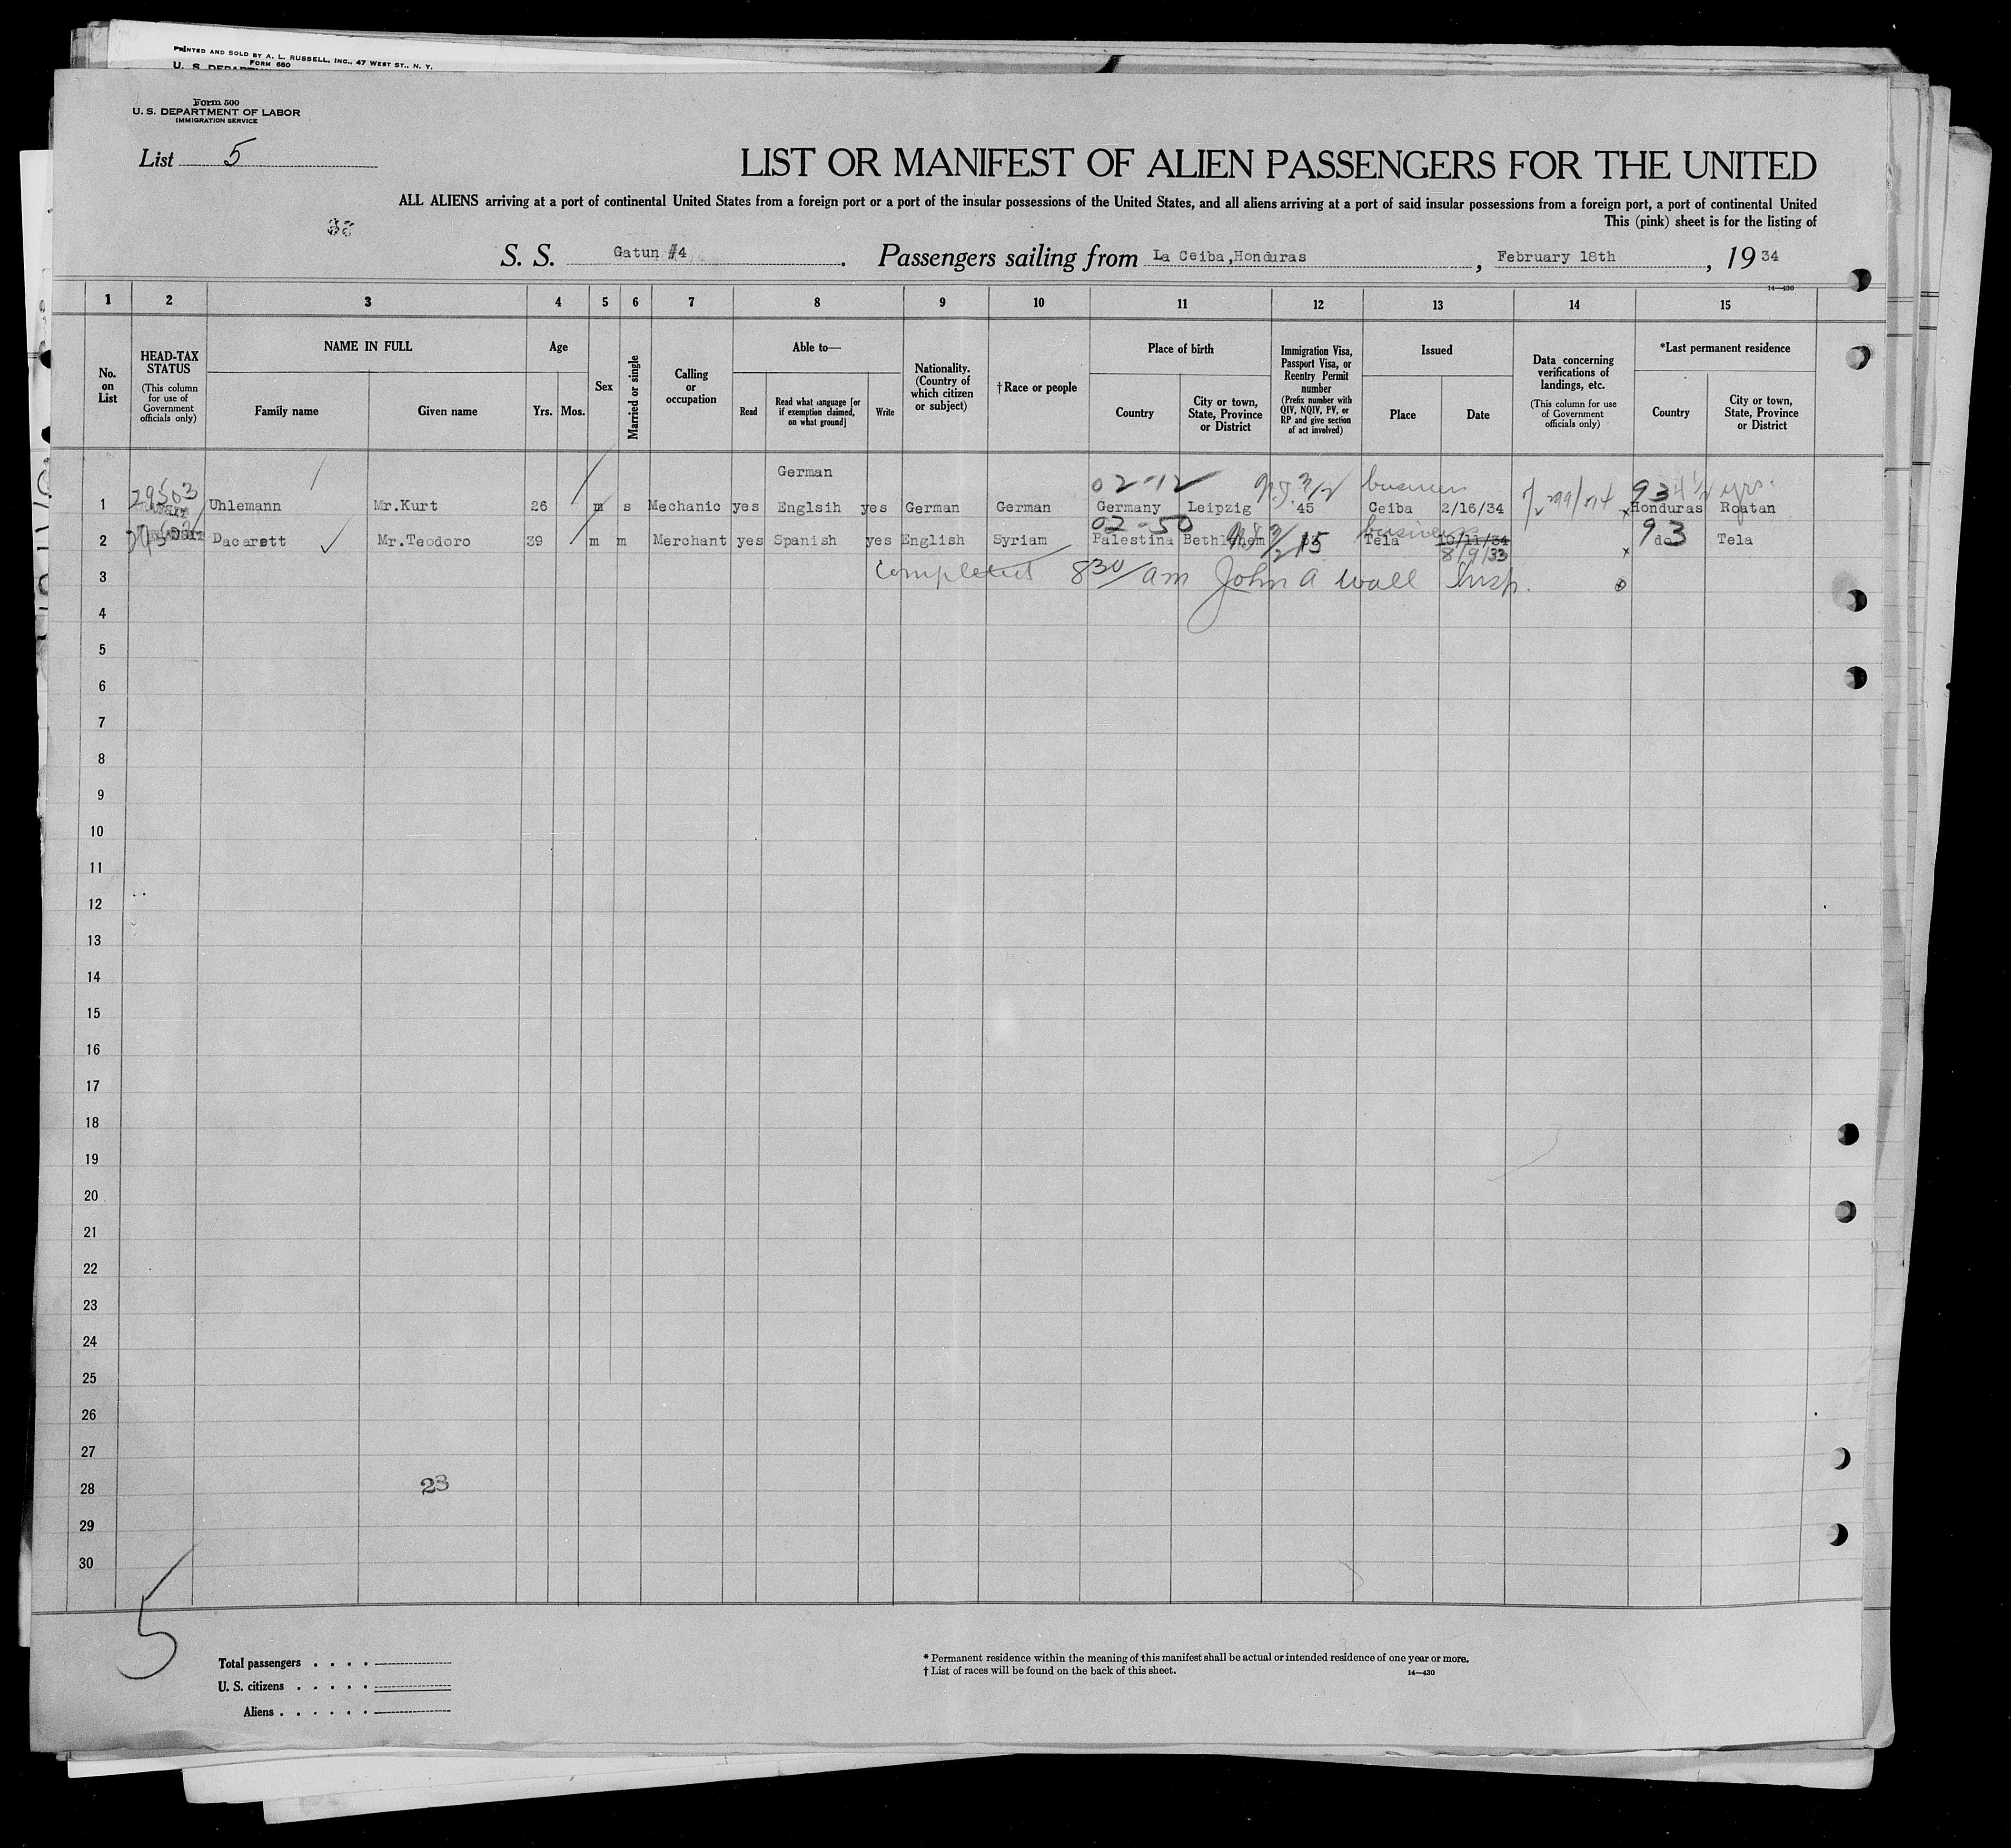 PRINTED AND SOLD BY A. L. RUSSELL, INC., 47 WEST ST., N. Y.
FORM 680
Form 500
U. S. DEPARTMENT OF LABOR
IMMIGRATION SERVICE
List 5
LIST OR MANIFEST OF ALIEN PASSENGERS FOR THE UNITED
ALL ALIENS arriving at a port of continental United States from a foreign port or a port of the insular possessions of the United States, and all aliens arriving at a port of said insular possessions from a foreign port, a port of continental United
This (pink) sheet is for the listing of
S. S. Gatun #4. Passengers sailing from La Ceiba,Honduras, February 18th, 1934
14—430
1 2 3 4 5 6 7 8 9 10 11 12 13 14 15
No. on List
HEAD-TAX STATUS (This column for use of Government officials only)
NAME IN FULL
Family name Given name
Age
Yrs. Mos.
Sex
Married or single
Calling or occupation
Able to—
Read Read what language [or if exemption claimed, on what ground] Write
Nationality. (Country of which citizen or subject)
† Race or people
Place of birth
Country City or town, State, Province or District
Immigration Visa, Passport Visa, or Reentry Permit number (Prefix number with QIV, NQIV, PV, or RP and give section of act involved)
Issued
Place Date
Data concerning verifications of landings, etc. (This column for use of Government officials only)
*Last permanent residence
Country City or town, State, Province or District
German
29503 02-12 3/2 business 93 4 1/2 yrs.
1 Uhlemann Mr.Kurt 26 m s Mechanic yes Englsih yes German German Germany Leipzig 45 Ceiba 2/16/34 Honduras Roatan
02-50 business 93
2 Dacarett Mr.Teodoro 39 m m Merchant yes Spanish yes English Syriam Palestina Bethlehem 15 Tela 10/11/34 do Tela
8/9/33
3 Completed 8 30/am John A Wall Insp.
4
5
6
7
8
9
10
11
12
13
14
15
16
17
18
19
20
21
22
23
24
25
26
27
28 23
29
30
5
Total passengers . . . .
U. S. citizens . . . . .
Aliens . . . . . .
* Permanent residence within the meaning of this manifest shall be actual or intended residence of one year or more.
† List of races will be found on the back of this sheet.
14—430